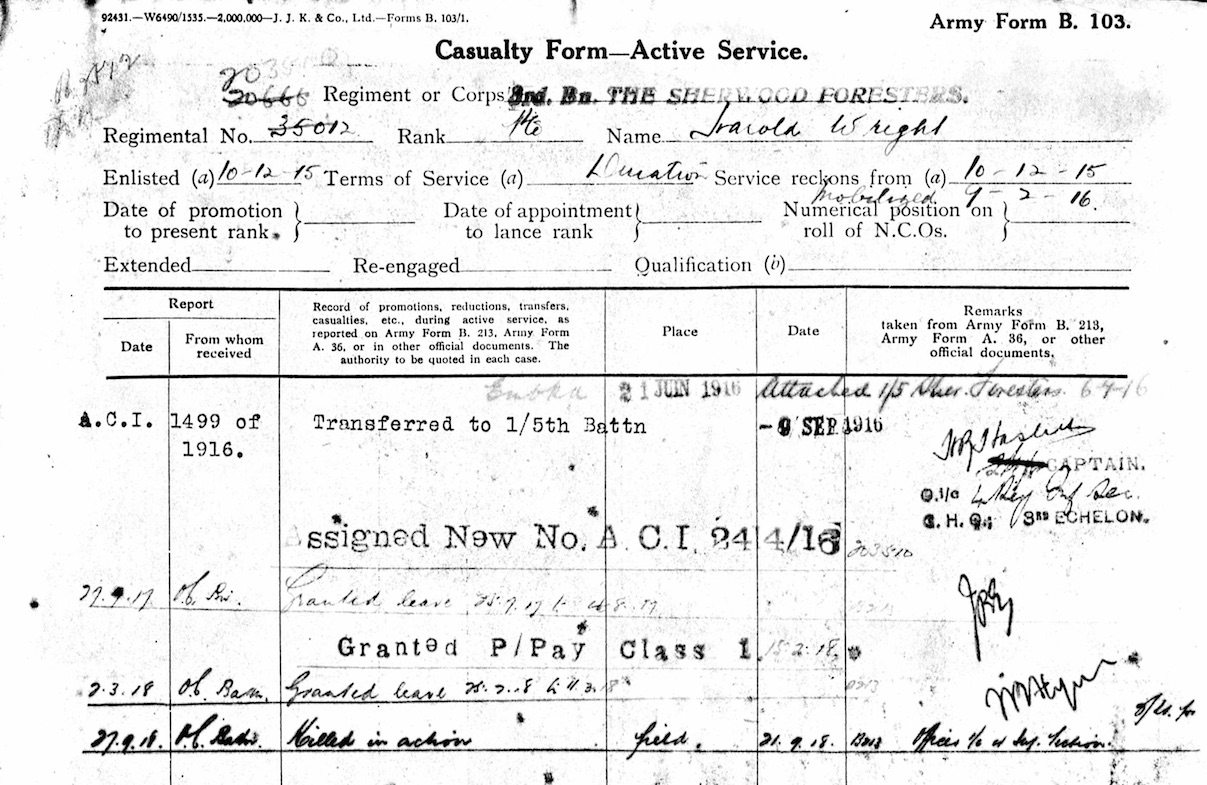 92431.—W6490/1535.—2,000,000—J. J. K. & Co., Ltd.—Forms B. 103/1.
Army Form B. 103.
Casualty Form—Active Service.
20
20666 Regiment or Corps 3rd. Bn. THE SHERWOOD FORESTERS.
Regimental No. 35012 Rank Pte Name Harold Wright
Enlisted (a) 10-12-15 Terms of Service (a) Duration Service reckons from (a) 10-12-15
Mobilized 9-2-16.
Date of promotion to present rank. } Date of appointment to lance rank } Numerical position on roll of N.C.Os. }
Extended Re-engaged Qualification (b)
Report
Date
From whom received
Record of promotions, reductions, transfers, casualties, etc., during active service, as reported on Army Form B. 213, Army Form A. 36, or in other official documents. The authority to be quoted in each case.
Place
Date
Remarks
taken from Army Form B. 213, Army Form A. 36, or other official documents.
21 JUIN 1916 Attached 1/5 Sher. Foresters 6-7-16
A.C.I. 1499 of 1916. Transferred to 1/5th Battn -9 SEP 1916
CAPTAIN.
O.i/c
G. H. Q., 3RD ECHELON.
Assigned New No. A.C.I. 2414/16 203510
27.9.17 Granted leave
Granted P/Pay Class 1. 15.2.18.
2.3.18 O.C. Battn. Granted leave
27.9.18. O.C. Battn. Killed in action field. 21.9.18. B213